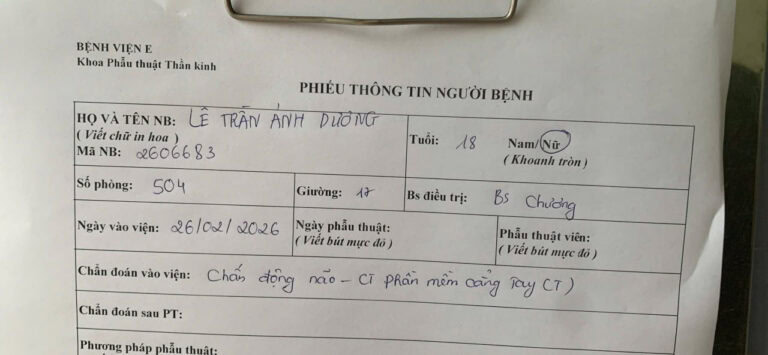 BỆNH VIỆN E
Khoa Phẫu thuật Thần kinh
PHIẾU THÔNG TIN NGƯỜI BỆNH
HỌ VÀ TÊN NB: LÊ TRẦN ÁNH DƯƠNG
( Viết chữ in hoa )
Mã NB: 2606683
Tuổi: 18 Nam/ Nữ
( Khoanh tròn )
Số phòng: 504 Giường: 17 Bs điều trị: Bs Chương
Ngày vào viện: 26/02/2026 Ngày phẫu thuật: Phẫu thuật viên:
( Viết bút mực đỏ ) ( Viết bút mực đỏ )
Chẩn đoán vào viện: Chấn động não - CT phần mềm cẳng tay (T)
Chẩn đoán sau PT:
Phương pháp phẫu thuật: